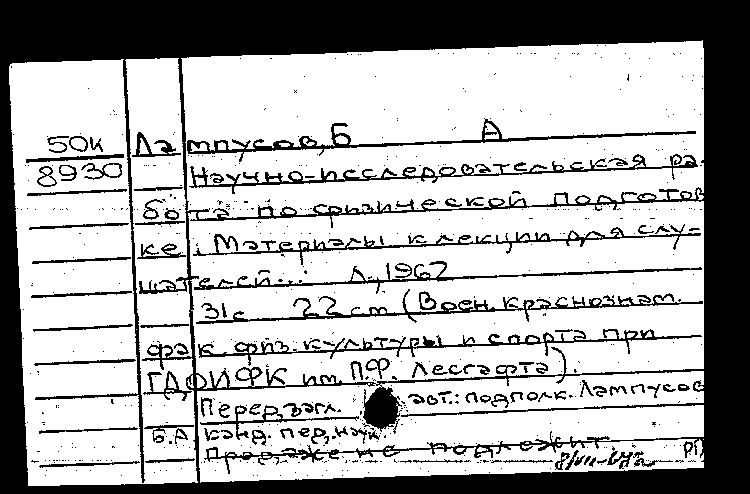 50к Лампусов, Б А
8930 Научно-исследовательская ра-
бота по физической подготов
ке: Материалы к лекции для слу-
шателей... Л., 1967
31с 22 cm (Воен. краснознам.
фак. физ. культуры и спорта при
ГДОИФК им. П.Ф. Лесгафта).
Перед загл. авт.: подполк. Лампусов
Б.А канд. пед. наук.
Продаже не подлежит.